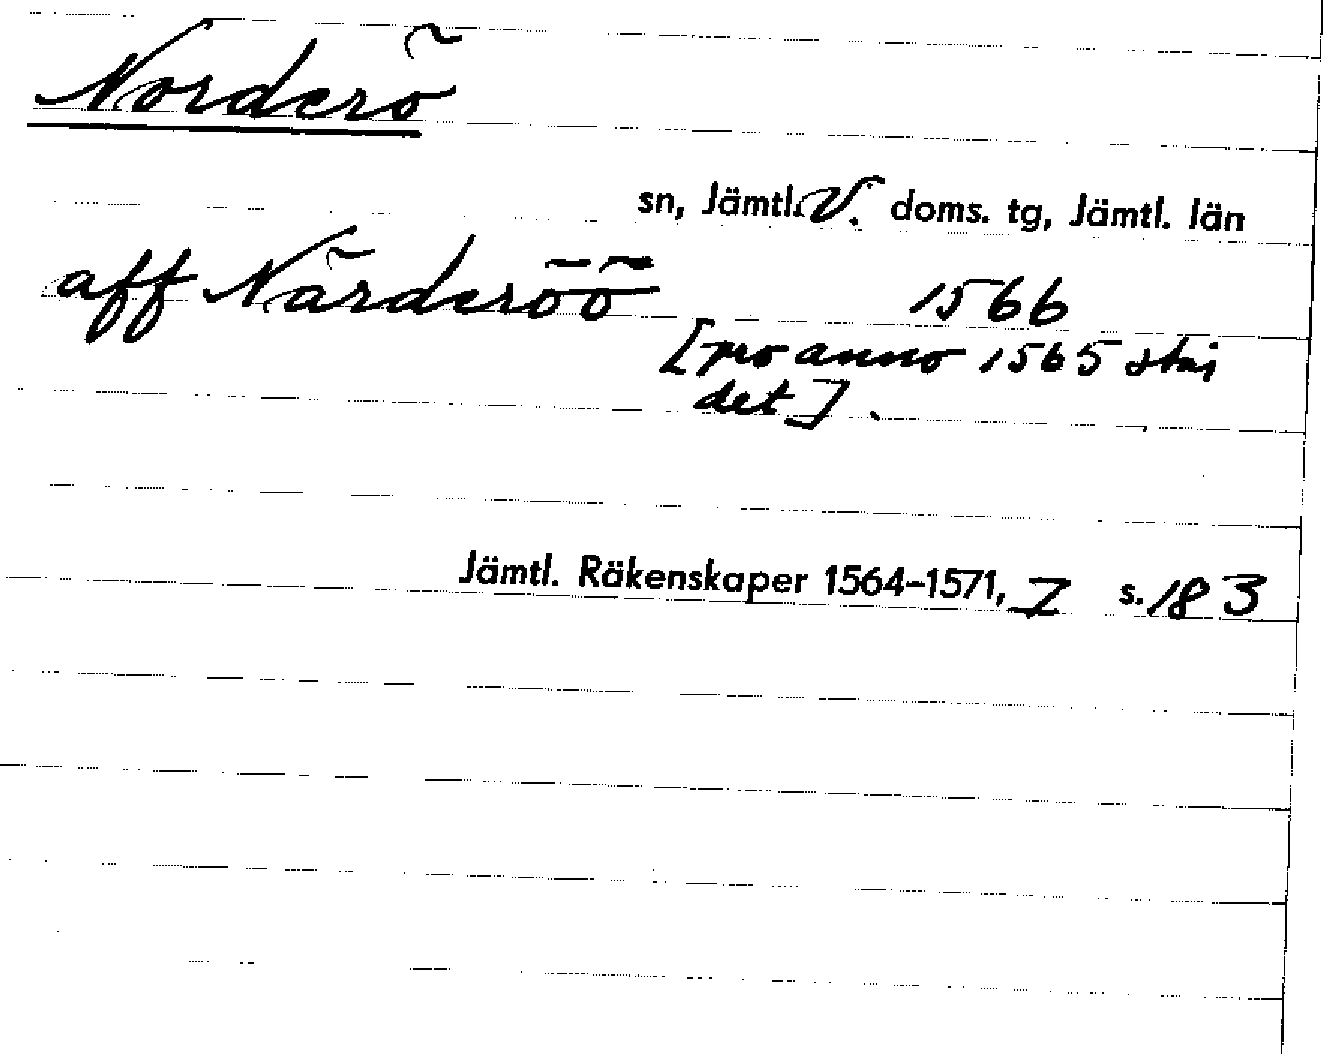 Norderö
sn, Jämtl. V. doms. tg, Jämtl. län
aff Närderöö 1566
[pro anno 1565 står
det].
Jämtl. Räkenskaper 1564-1571, I s. 183